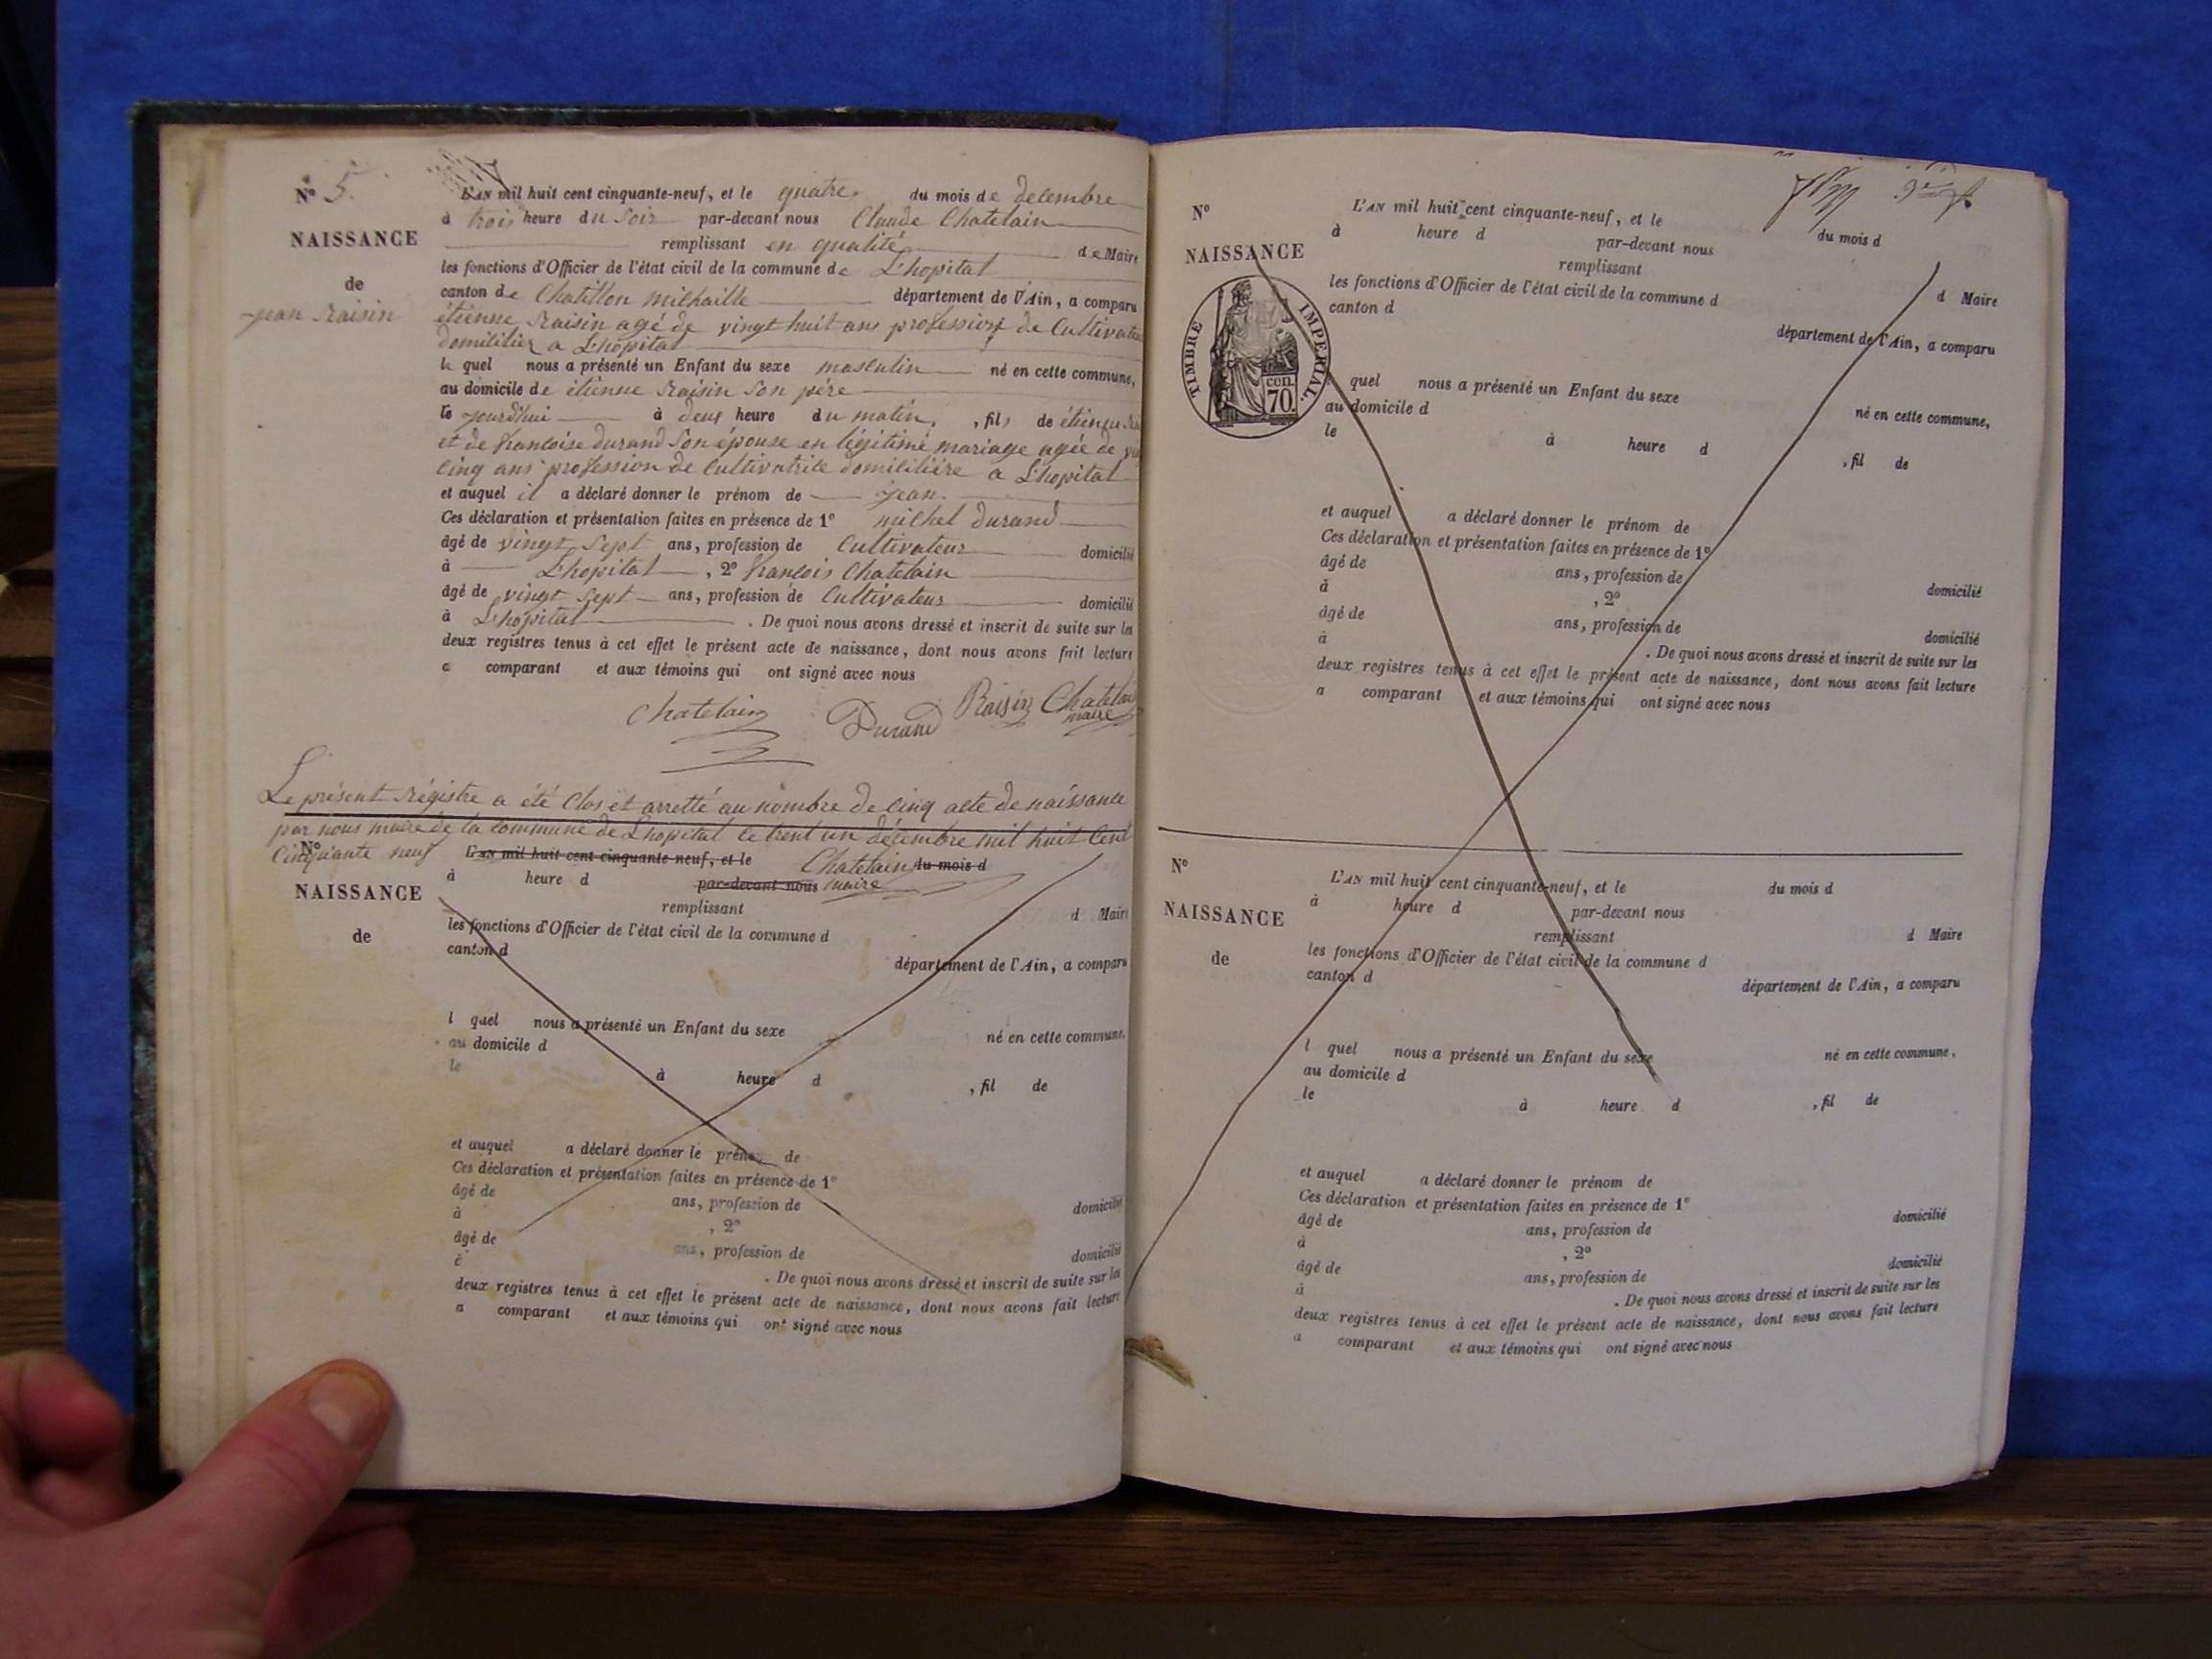 Nº 5.
NAISSANCE
de
jean Raisin
L'AN mil huit cent cinquante-neuf, et le quatre du mois de decembre
à trois heure du soir par-devant nous Claude Chatelain
remplissant en qualité de Maire
les fonctions d'Officier de l'état civil de la commune de L'hopital
canton de Chatillon michaille département de l'Ain, a comparu
étienne Raisin agé de vingt huit ans profession de Cultivateu
domicilier a L'hopital
le quel nous a présenté un Enfant du sexe masculin né en cette commune,
au domicile de étienne Raisin son père
le jourd'hui à deux heure du matin, , fils de étienne
et de francoise durand son épouse en légitime mariage agée de
cinq ans profession de Cultivatrice domicilière a L'hopital
et auquel il a déclaré donner le prénom de jean
Ces déclaration et présentation faites en présence de 1º michel durand
âgé de vingt sept ans, profession de Cultivateur domicilié
à L'hopital , 2º francois Chatelain
âgé de vingt sept ans, profession de Cultivateur domicilié
à L'hopital . De quoi nous avons dressé et inscrit de suite sur les
deux registres tenus à cet effet le présent acte de naissance, dont nous avons fait lecture
a comparant et aux témoins qui ont signé avec nous
Chatelain Durand Raisin Chatelain
maire
Le présent Régistre a été Clos et arretté au nombre de cinq acte de naissance
par nous maire de la commune de L'hopital le trent un décembre mil huit Cent
Cinquante neuf
Chatelain
maire
Nº
NAISSANCE
de
L'AN mil huit cent cinquante-neuf, et le du mois d
à heure d par-devant nous
remplissant
d Maire
les fonctions d'Officier de l'état civil de la commune d
canton d
département de l'Ain, a comparu
l quel nous a présenté un Enfant du sexe né en cette commune,
au domicile d
le à heure d , fil de
et auquel a déclaré donner le prénom de
Ces déclaration et présentation faites en présence de 1º
âgé de ans, profession de domicilié
à , 2º
âgé de ans, profession de domicilié
à . De quoi nous avons dressé et inscrit de suite sur les
deux registres tenus à cet effet le présent acte de naissance, dont nous avons fait lecture
a comparant et aux témoins qui ont signé avec nous
Nº
NAISSANCE
TIMBRE IMPERIAL.
cen. 70.
L'AN mil huit cent cinquante-neuf, et le du mois d
à heure d par-devant nous
remplissant
d Maire
les fonctions d'Officier de l'état civil de la commune d
canton d
département de l'Ain, a comparu
quel nous a présenté un Enfant du sexe
au domicile d né en cette commune,
le à heure d , fil de
et auquel a déclaré donner le prénom de
Ces déclaration et présentation faites en présence de 1º
âgé de ans, profession de domicilié
à , 2º
âgé de ans, profession de domicilié
à . De quoi nous avons dressé et inscrit de suite sur les
deux registres tenus à cet effet le présent acte de naissance, dont nous avons fait lecture
a comparant et aux témoins qui ont signé avec nous
Nº
NAISSANCE
de
L'AN mil huit cent cinquante-neuf, et le du mois d
à heure d par-devant nous
remplissant d Maire
les fonctions d'Officier de l'état civil de la commune d
canton d
département de l'Ain, a comparu
l quel nous a présenté un Enfant du sexe né en cette commune,
au domicile d
le à heure d , fil de
et auquel a déclaré donner le prénom de
Ces déclaration et présentation faites en présence de 1º
âgé de ans, profession de domicilié
à , 2º
âgé de ans, profession de domicilié
à . De quoi nous avons dressé et inscrit de suite sur les
deux registres tenus à cet effet le présent acte de naissance, dont nous avons fait lecture
a comparant et aux témoins qui ont signé avec nous